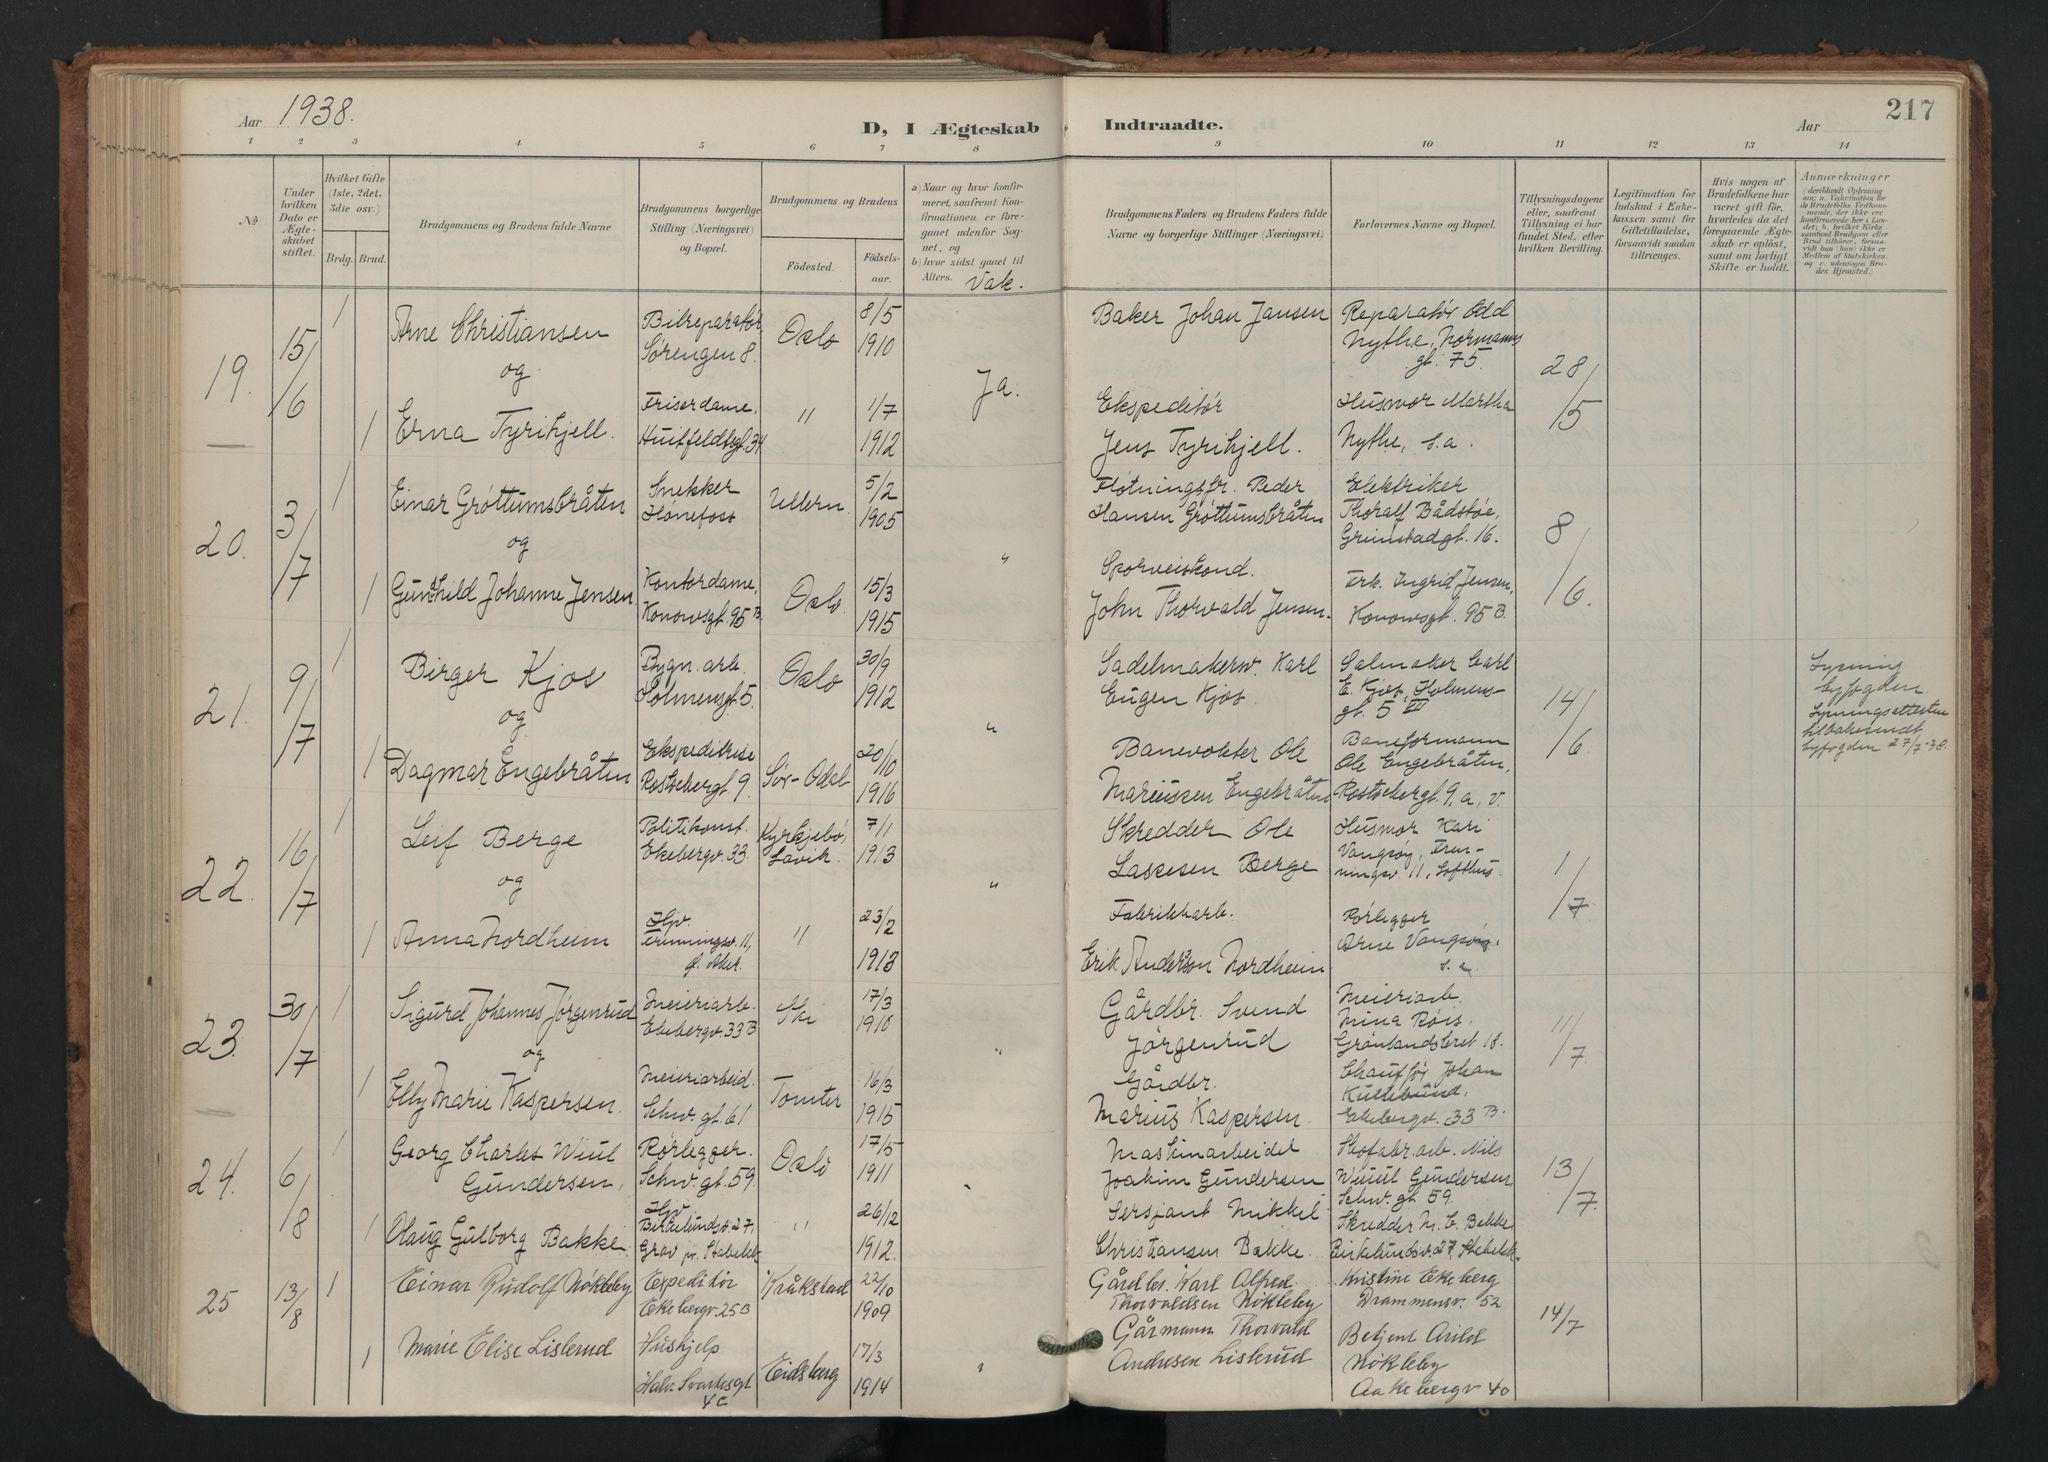 Aar 1938.
D, I Ægteskab Indtraadte.
Aar
217
1 2 3 4 5 6 7 8 9 10 11 12 13 14
№
Under hvilken Dato er Ægteskabet stiftet.
Hvilket Gifte (1ste, 2det, 3die osv.)
Brdg. Brud.
Brudgommens og Brudens fulde Navne
Brudgommens borgerlige Stilling (Næringsvei) og Bopæl.
Brudgommens og Brudens
Födested.
Födselsaar.
a) Naar og hvor konfirmeret, saafremt Konfirmationen er foregaaet udenfor Sognet, og
b) hvor sidst gaaet til Alters.
Vak.
Brudgommens Faders og Brudens Faders fulde Navne og borgerlige Stillinger (Næringsvei)
Forlovernes Navne og Bopæl.
Tillysningsdagene eller, saafremt Tillysning ei har fundet Sted, efter hvilken Bevilling.
Legitimation for Indskud i Enkekassen samt for Giftetilladelse, forsaavidt saadan tiltrænges.
Hvis nogen af Brudefolkene har været gift för, hvorledes da det foregaaende Ægteskab er oplöst, samt om lovligt Skifte er holdt.
Anmærkninger
(deriblandt Oplysning om: a. Vaccination for de Brudefolks Vedkommende, der ikke ere konfirmerede her i Landet; b. hvilket Kirkesamfund Brudgom eller Brud tilhører, forsaavidt han (hun) ikke er Medlem af Statskirken, og c. udensogns Brudes Hjemsted.)
19. 15/6
1 Arne Christiansen
Bilreparatør
Sørengen 8.
Oslo
8/5
1910
Ja.
Baker Johan Jansen
Reparatør Odd
Nythe, Normanns
gt. 75.
28/5
og
1 Erna Tyrihjell.
Friserdame,
Huitfeldtsgt. 34
"
1/7
1912
Ekspeditør
Jens Tyrihjell.
Husmor Martha
Nythe, s.a.
20. 3/7
1 Einar Gróttumsbråten
Snekker
Hønefoss
Ullern.
5/2
1905
"
Fløtningsfr. Peder
Hansen Gróttumsbråten
Elektriker
Thoralf Bådstøe,
Grimstadgt. 16.
8/6
og
1 Gunhild Johanne Jensen
Kontordame,
Konowsgt. 95 B
Oslo.
15/3
1915
Sporveiskond.
John Thorvald Jensen.
Frk. Ingrid Jensen,
Konowsgt. 95 B.
21. 9/7
1 Birger Kjos
Bygn. arb.
Holmensgt. 5.
Oslo
30/9
1912
"
Sadelmakersv. Karl
Eugen Kjos
Salmaker Carl
E. Kjos, Holmens-
gt. 5 III
14/6
Lysning
byfogden.
Lysningsattesten
tilbakesendt
byfogden 27/7-38.
og
1 Dagmar Engebråten
Ekspeditrise
Rostockergt. 9.
Sør-Odal
20/10
1916
Banevokter Ole
Mariussen Engebråten
Baneformann
Ole Engebråten,
9, a, v.
22. 16/7
1 Leif Berge
Politikonst.
Ekebergv. 33.
Kyrkjebø,
Lavik.
7/1
1913
"
Skredder Ole
Lassesen Berge
Husmor Kari
Vangsøy, Tren-
ningsv. 11, Lofthus.
1/7
og
1 Anna Nordheim
Hjv.
Trenningsv. 11,
Ø. Aker.
"
23/2
1913
Fabrikkarb.
Erik Anderson Nordheim
Rørlegger
Arne Vangsøy.
s. a.
23. 30/7
1 Sigurd Johannes Jørgenrud
Meieriarb.
Ekebergv. 33 B
Ski
17/3
1910
"
Gårdbr. Svend
Jørgenrud
Meieriarb.
Mina Røis.
Grønlandsleret 18.
11/7
og
1 Elly Marie Kaspersen.
Meieriarbeid.
Schw. gt. 61
Tomter
16/3
1915
Gårdbr.
Marius Kaspersen
Chauffør Johan
Kullebund.
Ekebergv. 33 B.
24. 6/8
1 Georg Charles Wiul
Gundersen,
Rørlegger.
Schw. gt. 59.
Oslo
17/5
1911
"
Maskinarbeider
Joakim Gundersen
Skofabr. arb. Nils
Wiuul Gundersen,
Schw. gt. 59.
13/7
1 Olaug Gulborg Bakke.
Hjv.
Birkelundsv. 27,
Grav pr. Stabekk
"
26/12
1912.
Sersjant Mikkel
Christiansen Bakke.
Skredder M. C. Bakke
Birkelundsv. 27, Stabekk
25 13/8
1 Einar Rudolf Nøkleby
Expeditør
Ekebergv. 25 B
Kråkstad
22/10
1909
"
Gårdbr. Karl Alfred
Thorvaldsen Nøkleby
Kristine Ekeberg
Drammensv. 52
14/7
1 Marie Elise Lislerud
Hushjelp
Halv. Svartesgt
4 C
Eidsberg
17/3
1914
Gårmann Thorvald
Andresen Lislerud
Betjent Arild
Nøkleby
Aakebergv 40